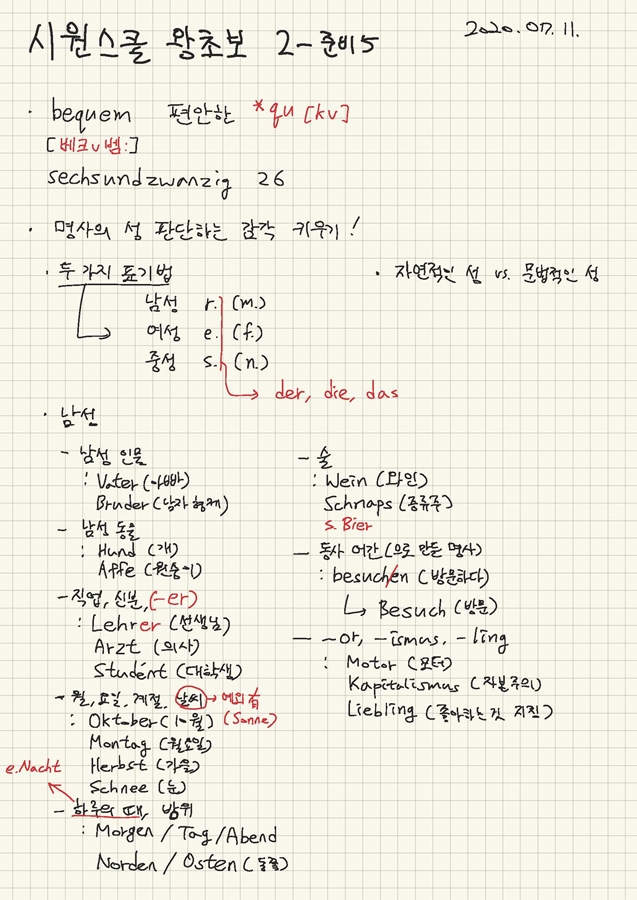 시원스쿨 왕초보 2-준비5
2020.07.11.
· bequem 편안한 *qu [kv]
[베크v벰:]
sechsundzwanzig 26
· 명사의 성 판단하는 감각 키우기!
· 두 가지 표기법
남성 r. (m.)
여성 e. (f.)
중성 s. (n.)
der, die, das
· 자연적인 성 vs. 문법적인 성
· 남성
- 남성 인물
: Vater (아빠)
Bruder (남자 형제)
- 남성 동물
: Hund (개)
Affe (원숭이)
- 직업, 신분, (-er)
: Lehrer (선생님)
Arzt (의사)
Student (대학생)
- 월, 요일, 계절, 날씨 → 예외 有
: Oktober (10월) (Sonne)
Montag (월요일)
Herbst (가을)
Schnee (눈)
e.Nacht
- 하루의 때, 방위
: Morgen / Tag / Abend
Norden / Osten (동쪽)
- 술
: Wein (와인)
Schnaps (증류주)
s. Bier
- 동사 어간(으로 만든 명사)
: besuchen (방문하다)
Besuch (방문)
- -or, -ismus, -ling
: Motor (모터)
Kapitalismus (자본주의)
Liebling (좋아하는 것 지칭)